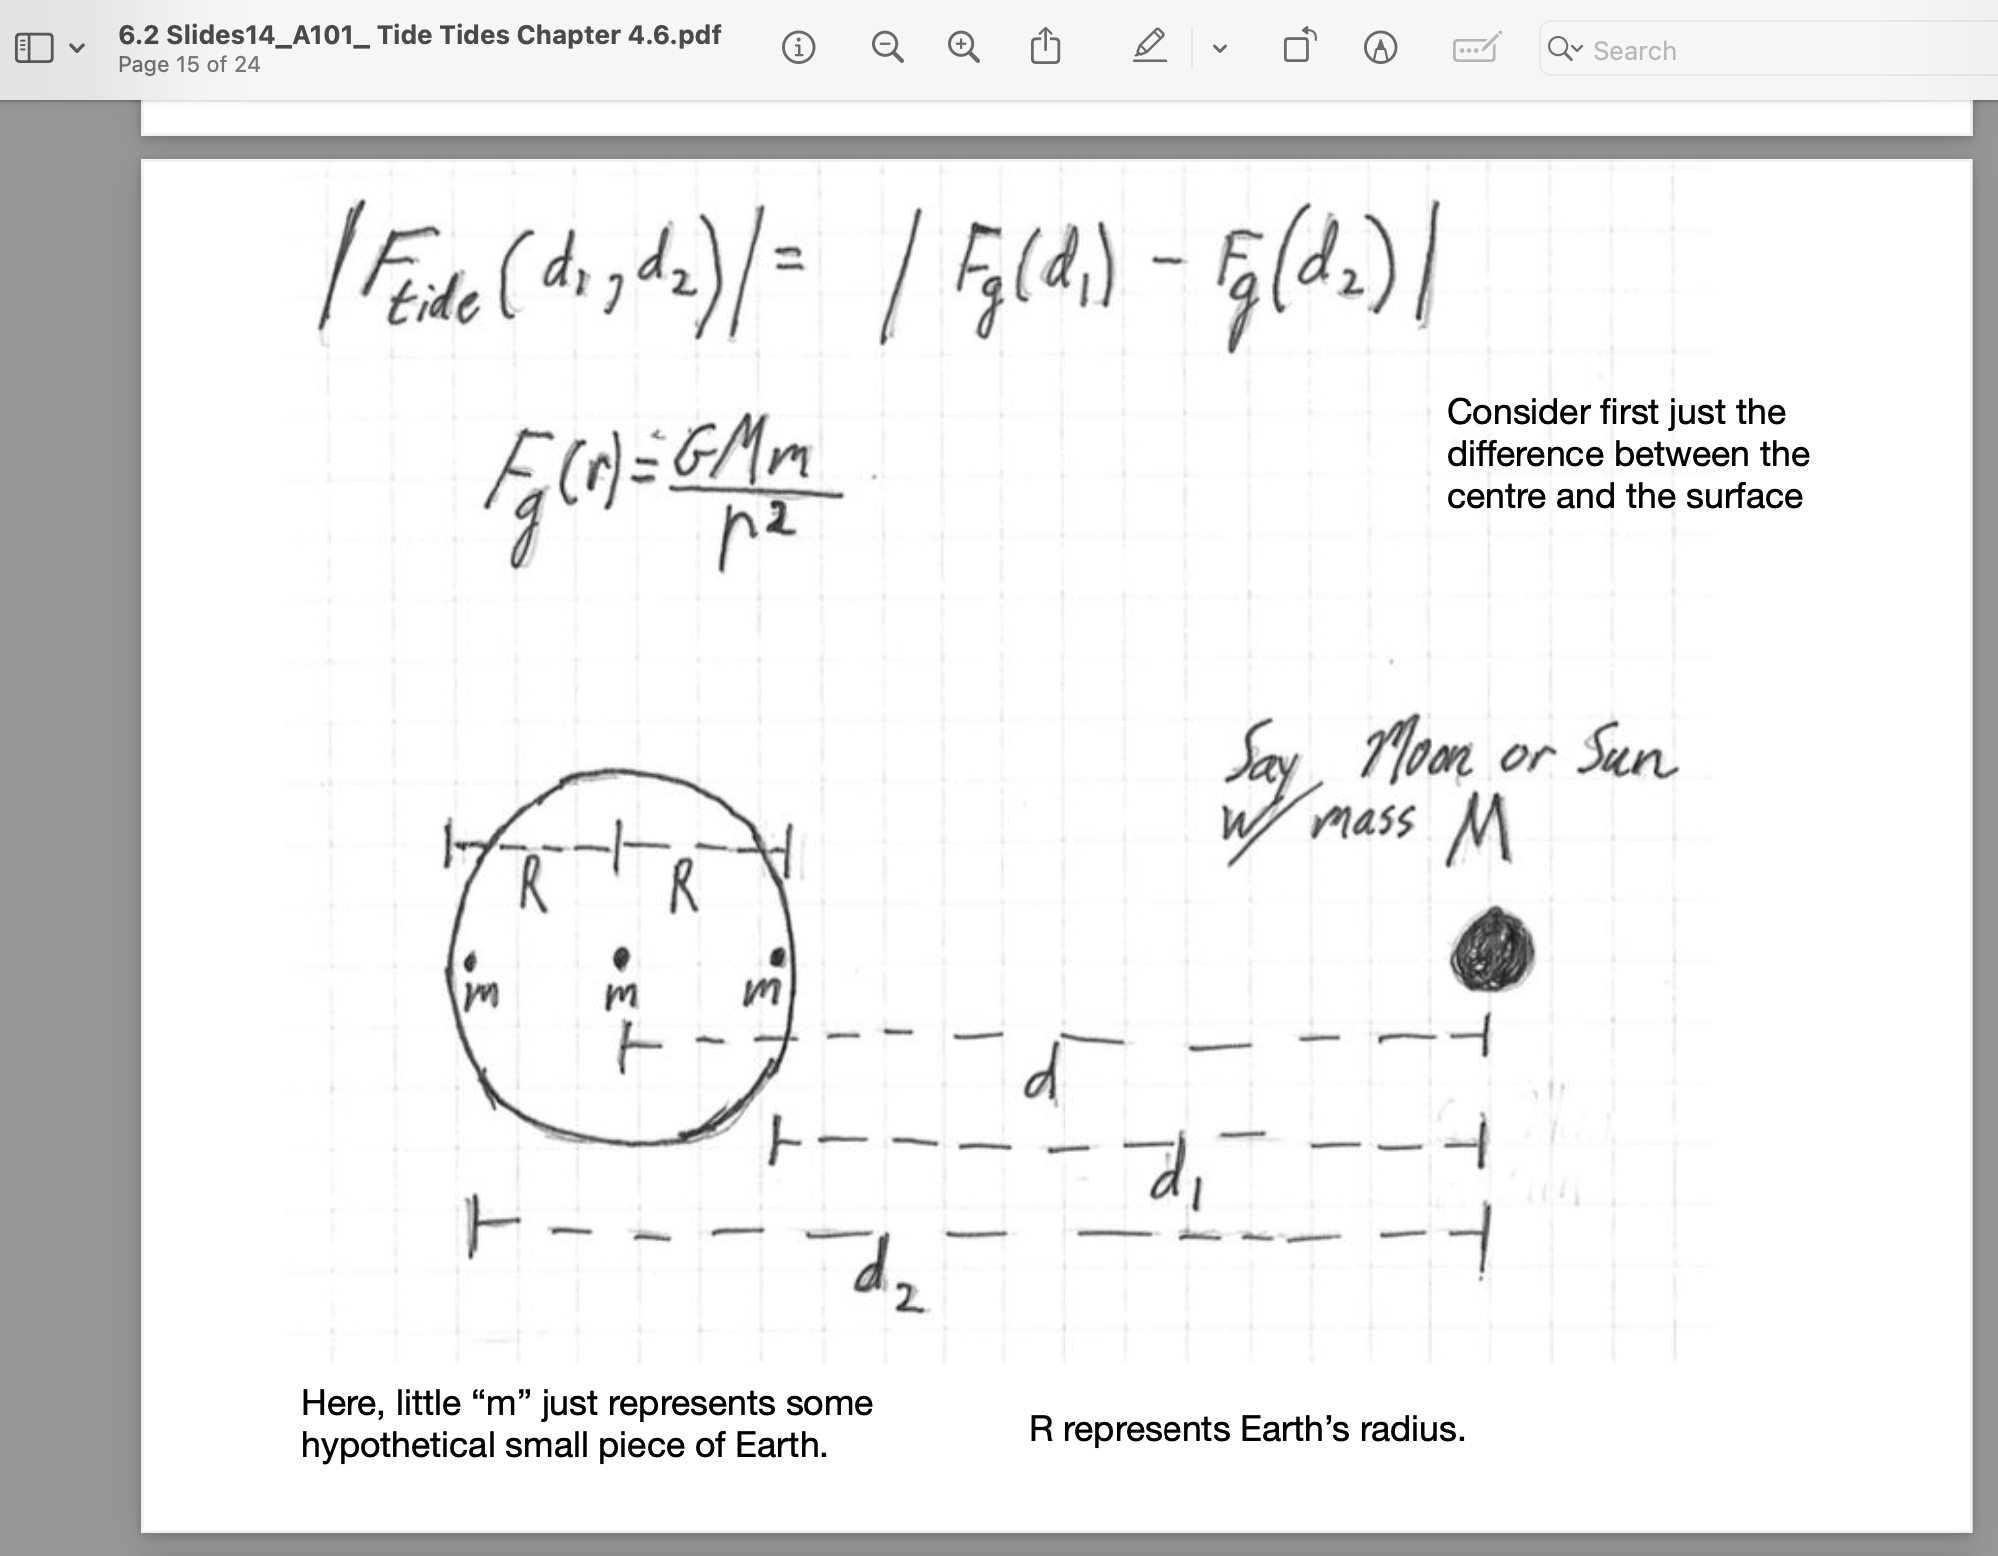 6.2 Slides14_A101_ Tide Tides Chapter 4.6.pdf
Page 15 of 24
Search
|F_tide(d₁, d₂)| = |F_g(d₁) - F_g(d₂)|
Consider first just the
difference between the
centre and the surface
F_g(r) = GMm
r²
Say, Moon or Sun
w/ mass M
R R
m m m
d
d₁
d₂
Here, little “m” just represents some
hypothetical small piece of Earth.
R represents Earth’s radius.